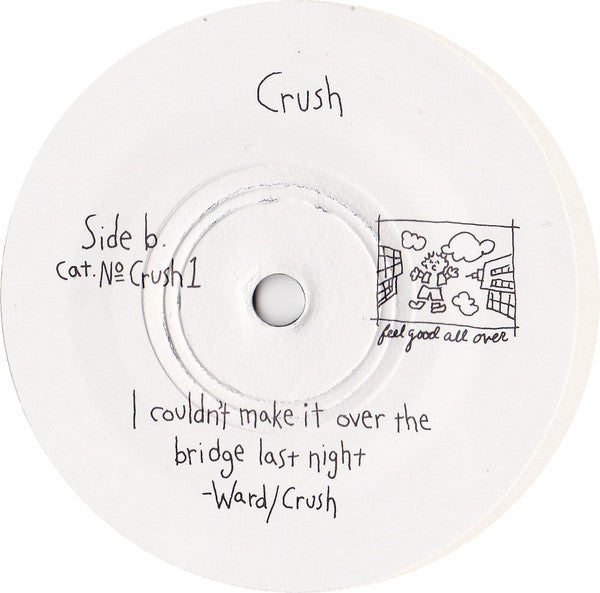 Crush
Side b.
Cat. Nº Crush 1
feel good all over
I couldn't make it over the
bridge last night
-Ward/Crush